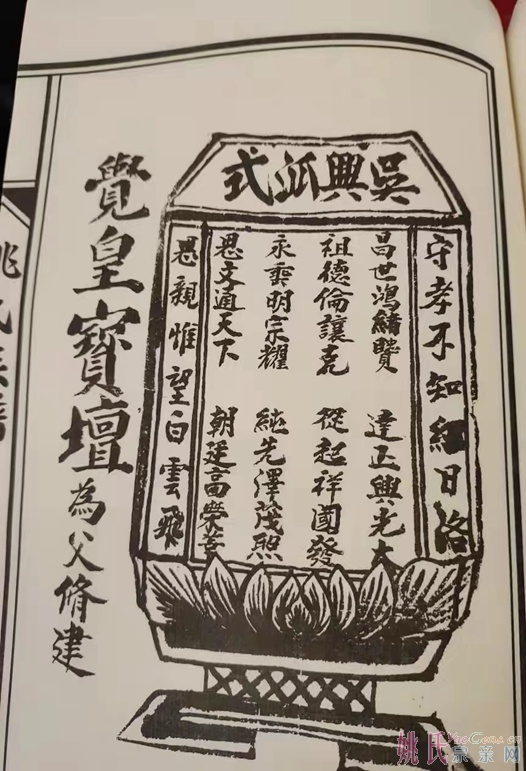 吳興泒式
守孝不知紅日落
昌世鴻緒賛 達正興光大
祖德倫讓克 從起祥國發
永雲明宗耀 純先澤茂熙
思文通天下 朝廷高榮
思親惟望白雲飛
覺皇寶壇 為父脩建
姚氏宗亲网